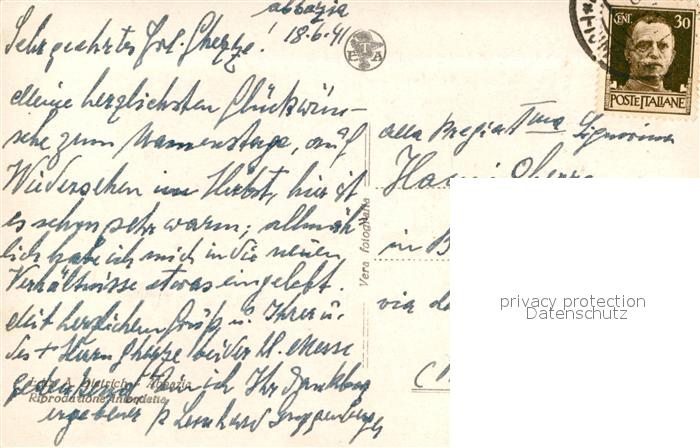 Abbazia
18-6-41
Sehr geehrtes Frl. Gherze!
Meine herzlichsten Glückwün-
sche zum Namenstage, auf
Wiedersehen im Herbst, hier ist
es schon sehr warm; allmäh-
lich habe ich mich in die neuen
Verhältnisse etwas eingelebt.
Mit herzlichem Gruß, u. Ihrer u.
des + Herrn Gherze bei der hl. Messe
gedenkend bin ich Ihr dankbar
ergebener P. Leonhard
Ediz. A. Dietrich - Abbazia
Riproduzione interdetta
Vera fotografia
ETA
CENT. 30
POSTE ITALIANE
alla Pregiatma Signorina
in B
via de
privacy protection
Datenschutz